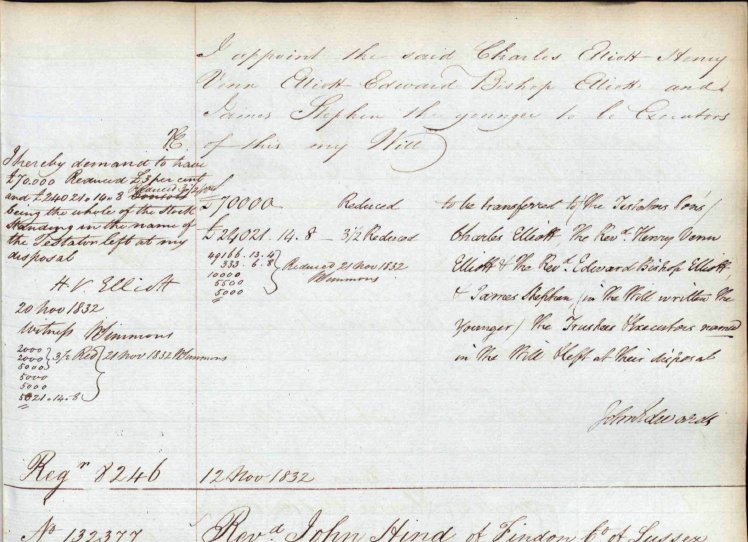 I appoint the said Charles Elliott Henry
Venn Elliott Edward Bishop Elliott and
James Stephen the younger to be Executors
of this my Will
H.
I hereby demand to have
£70.000 Reduced £3 per cent
and £24021.14.8 Consols Reduced 3½ per Cent
being the whole of the Stock
standing in the name of
the Testator left at my
disposal
H V Elliott
20 Nov 1832
Witness W Simmons
2000
2000
5000
5000
5000
5021.14.8
3½ Red 21 Nov 1832 W Simmons
£70000 Reduced
£24021.14.8 3½ Reduced
49166.13.4
333.6.8
10000
5500
5000
Reduced 21 Nov 1832
W Simmons
to be transferred to the Testators Sons /
Charles Elliott, The Revd. Henry Venn
Elliott & the Revd. Edward Bishop Elliott,
& James Stephen, / in the Will written the
Younger / the Trustees & Executors named
in the Will & left at their disposal
John Edwards
Regr 8246 12 Nov 1832
No 132377 Revd. John Hind of Findon Co of Sussex